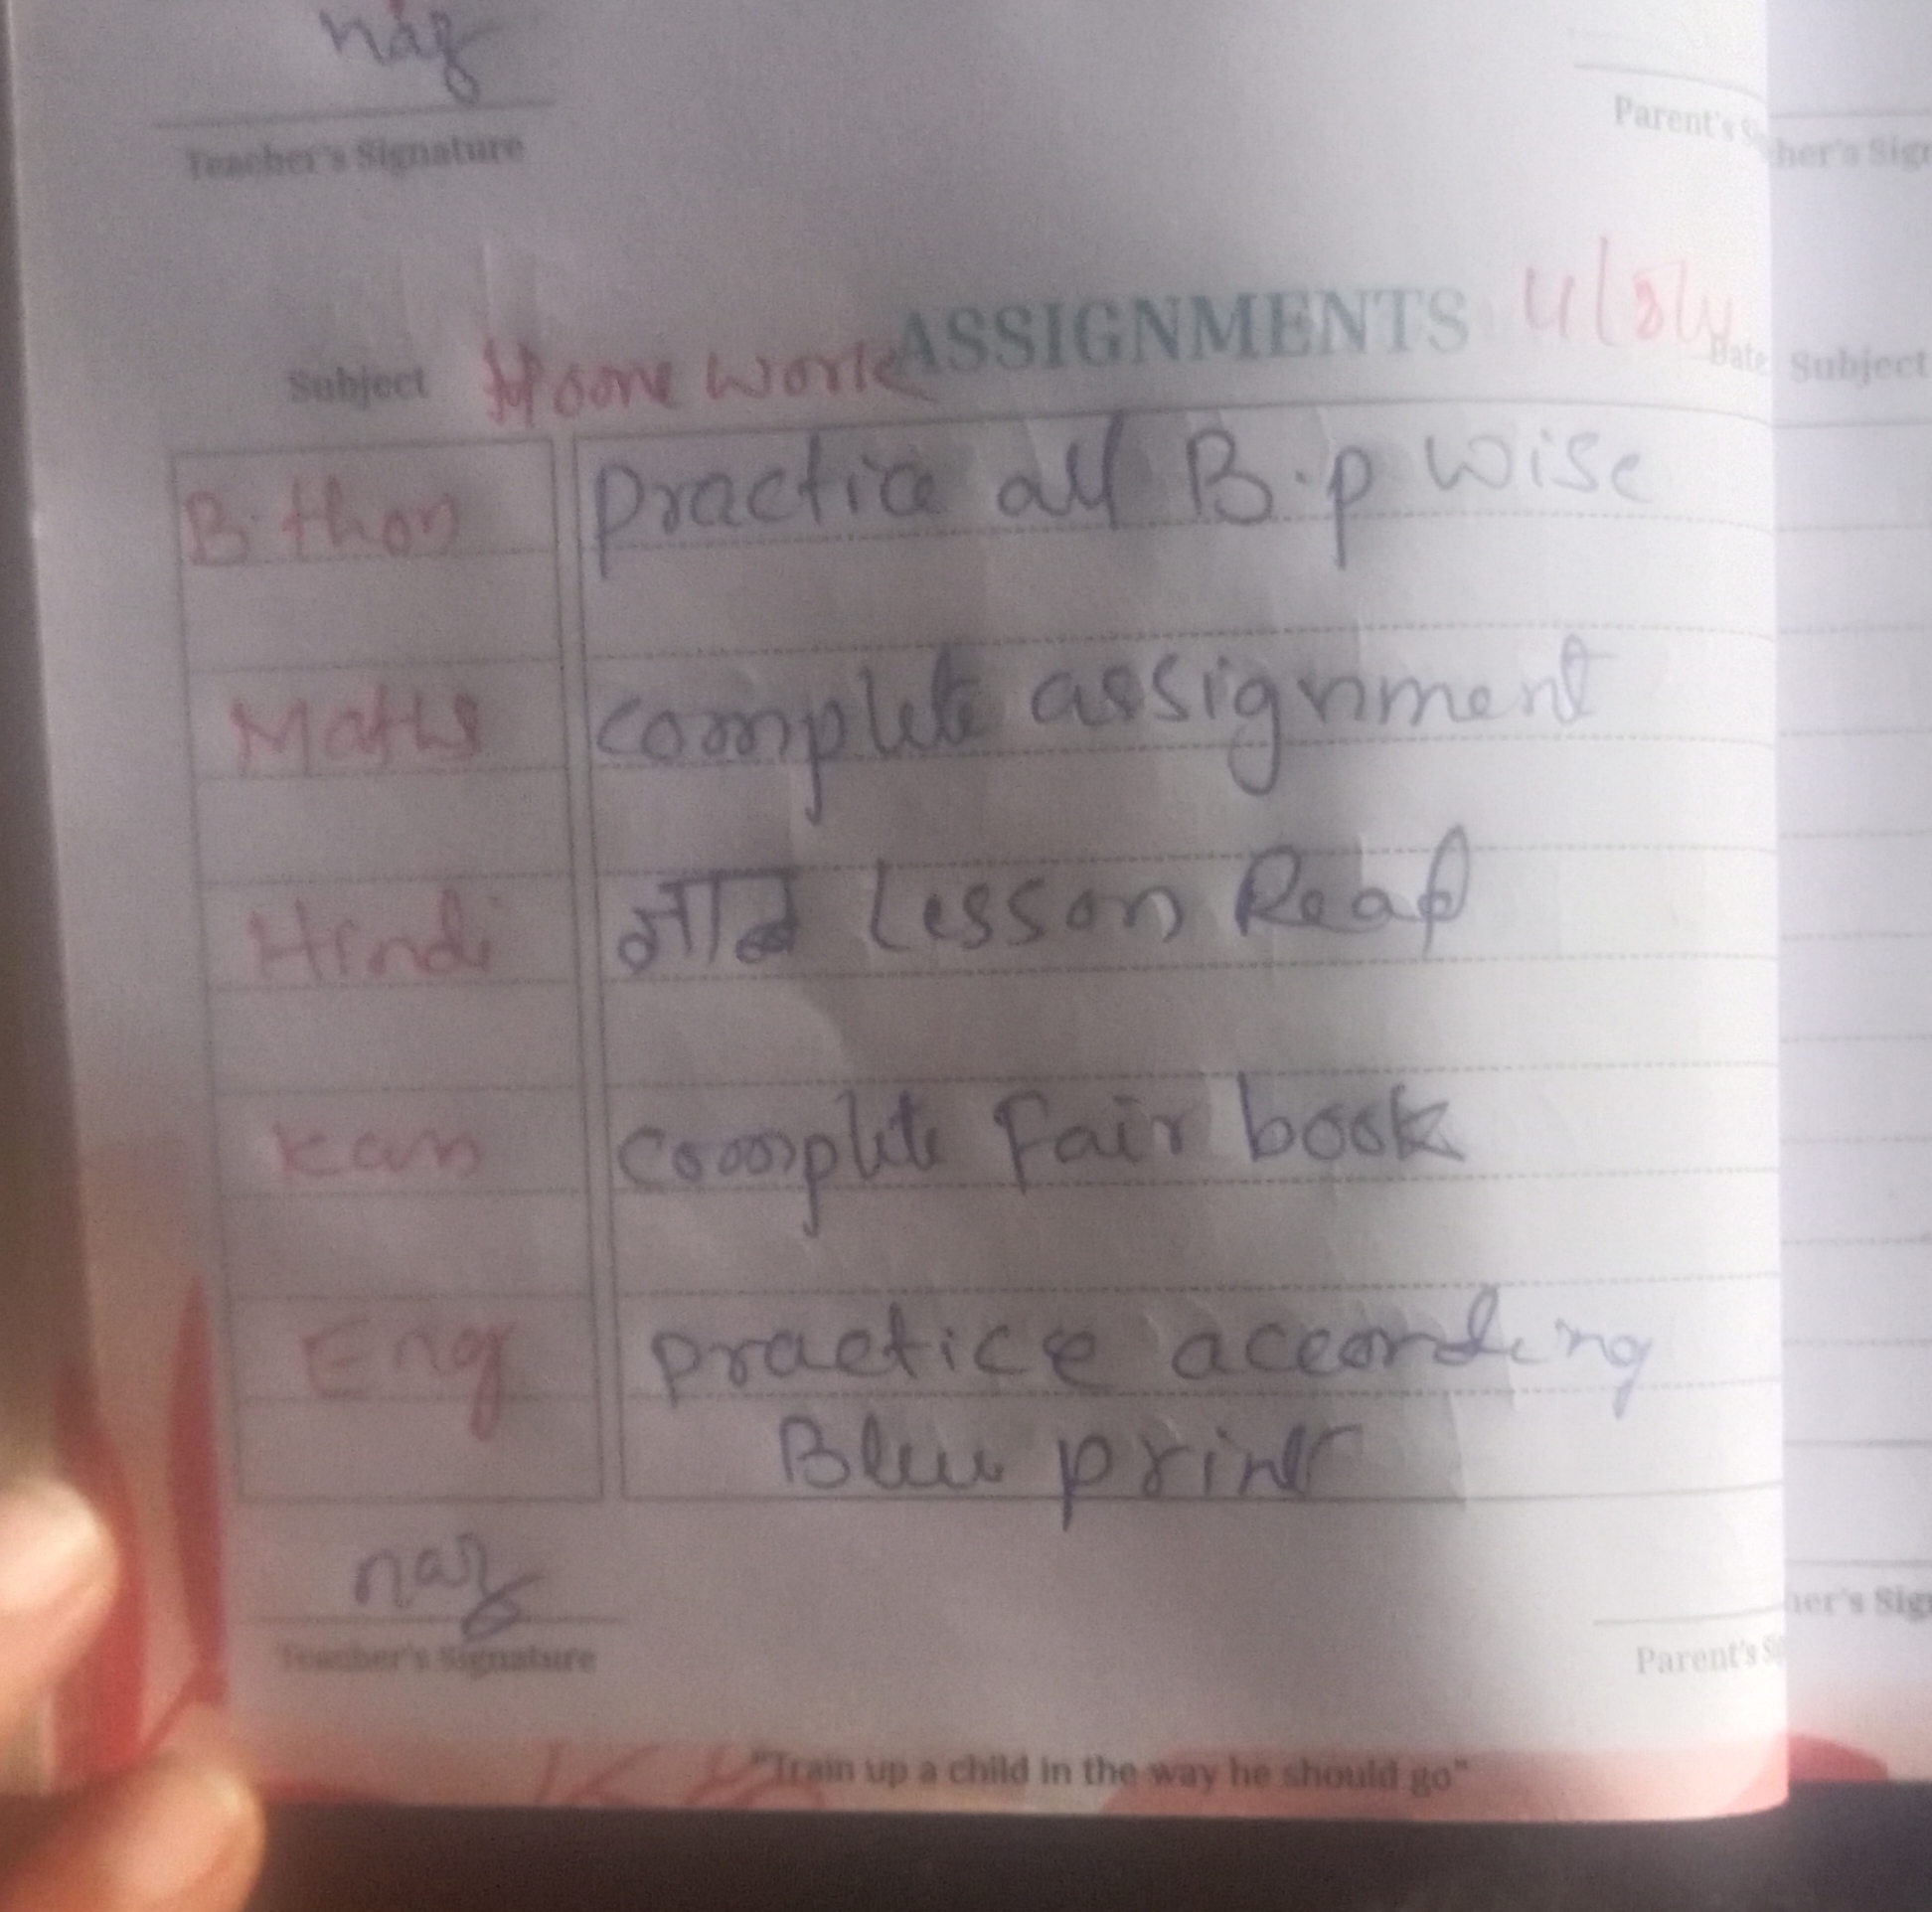 naz
Teacher's Signature
Parent's
her's Sign
ASSIGNMENTS
Subject Home work
Date
Subject
B.thon practice all B.p wise
Maths complete assignment
Hindi Lesson Read
Kan complete Fair book
Eng practice according
Blue print
naz
Teacher's Signature
Parent's
her's Sign
"Train up a child in the way he should go"